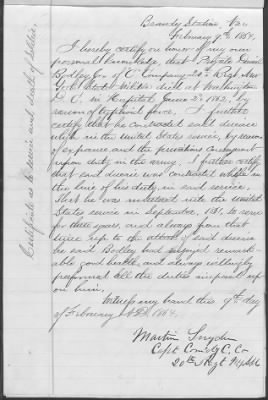 Brandy Station, Va.
February 9th 1864.
I hereby certify on honor of my own
personal knowledge, that Private David
Bodley Co. of "C" Company, 20th Regt New
York State Militia died at Washington
D.C. in Hospital June 2d 1862, by
reason of typhoid fever. I further
certify that he contracted said disease
while in the United States service, by reason
of exposure and the privations consequent
upon duty in the army. I further certify
that said disease was contracted while in
the line of his duty, in said service.
That he was mustered into the United
States service in September, 1861, to serve
for three years, and always from that
time up to the attack of said disease
he said Bodley had enjoyed remark-
able good health, and always willingly
performed all the duties imposed up
on him.
Witness my hand this 9th day
of February A.D. 1864.
Martin Snyder
Capt Comdg C. Co
20th Regt NYSM
Certificate as to service and death of soldier.